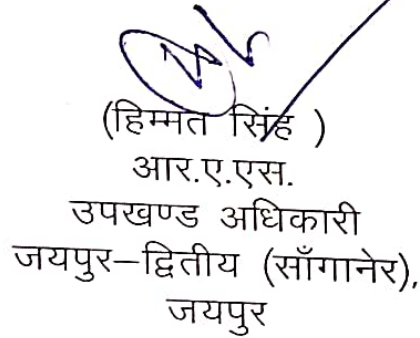 (हिम्मत सिंह )
आर.ए.एस.
उपखण्ड अधिकारी
जयपुर–द्वितीय (साँगानेर),
जयपुर